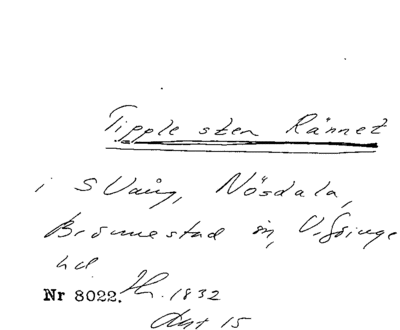 Tipplesten Rännet
i S Vång, Nösdala,
Brönnestad sn, V. Göinge
hd
Nr 8022. Th. 1832
Akt 15